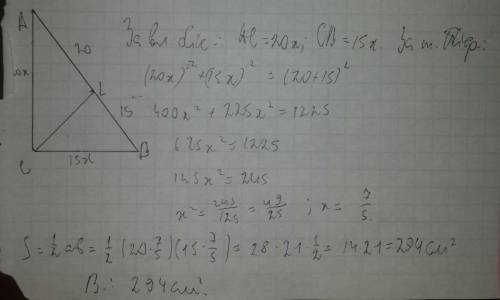 A
20
20x
L
15
C
15x
B
За вл. біс.: AC=20x; CB=15x. За т. Піфаг.:
(20x)² + (15x)² = (20+15)²
400x² + 225x² = 1225
625x² = 1225
125x² = 245
x² = 245/125 = 49/25 ; x = 7/5.
S = 1/2 ab = 1/2 (20·7/5)(15·7/5) = 28·21·1/2 = 14·21 = 294 см²
В.: 294 см².